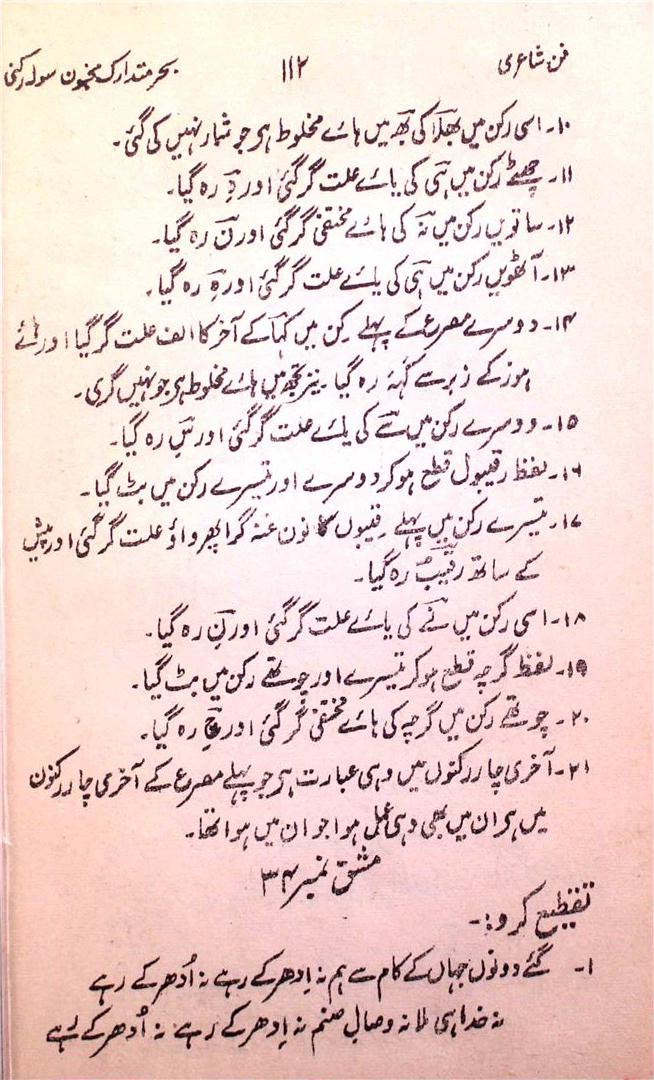 فن شاعری ۱۱۲ بحر متدارک مخبون سولہ رکنی
۱۰۔ اسی رکن میں بھلا کی بھ میں ہائے مخلوط ہر جو شمار نہیں کی گئی۔
۱۱۔ چھٹے رکن میں ہی کی یائے علت گر گئی اور ہِ رہ گیا۔
۱۲۔ ساتویں رکن میں نہ کی ہائے مختفی گر گئی اور نَ رہ گیا۔
۱۳۔ آٹھویں رکن میں ہی کی یائے علت گر گئی اور ہِ رہ گیا۔
۱۴۔ دوسرے مصرع کے پہلے رکن میں کہا کے آخر کا الف علت گر گیا اور ہائے
ہوز کے زبر سے کہَہ رہ گیا۔ نیز مجھ میں ہائے مخلوط ہر جو نہیں گری۔
۱۵۔ دوسرے رکن میں سے کی یائے علت گر گئی اور سِ رہ گیا۔
۱۶۔ لفظ رقیبوں قطع ہو کر دوسرے اور تیسرے رکن میں بٹ گیا۔
۱۷۔ تیسرے رکن میں پہلے رقیبوں کا نون غنہ گرا پھر واؤ علت گر گئی اور پیش
کے ساتھ رقیبُ رہ گیا۔
۱۸۔ اسی رکن میں نے کی یائے علت گر گئی اور نِ رہ گیا۔
۱۹۔ لفظ گرچہ قطع ہو کر تیسرے اور چوتھے رکن میں بٹ گیا۔
۲۰۔ چوتھے رکن میں گرچہ کی ہائے مختفی گر گئی اور چِ رہ گیا۔
۲۱۔ آخری چار رکنوں میں وہی عبارت ہر جو پہلے مصرع کے آخری چار رکنوں
میں ہر ان میں بھی وہی عمل ہوا جو ان میں ہوا تھا۔
مشق نمبر ۳۴
تقطیع کرو:۔
۱۔ گئے دونوں جہاں کے کام سے ہم نہ اِدھر کے رہے نہ اُدھر کے رہے
نہ خدا ہی ملا نہ وصالِ صنم نہ اِدھر کے رہے نہ اُدھر کے رہے